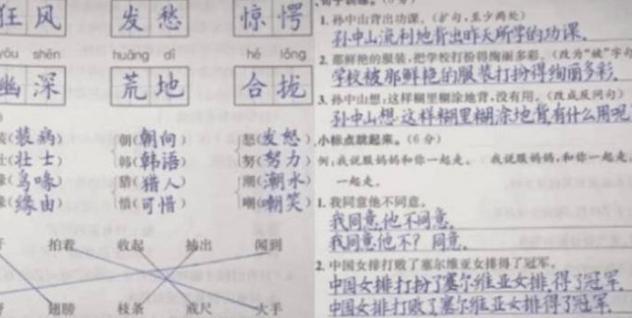 狂风 发愁 惊愕
yōu shēn huāng dì hé lǒng
幽深 荒地 合拢
(装病) 朝(朝向) 怒(发怒)
(壮士) 韩(韩语) 努(努力)
(鸟喙) 猎(猎人) 潮(潮水)
(缘由) 惜(可惜) 嘲(嘲笑)
拍着 收起 抽出 闻到
翅膀 枝条 戒尺 大手
1.孙中山背出功课。(扩句,至少两处)
孙中山流利地背出昨天所学的功课。
2.那鲜艳的服装,把学校打扮得绚丽多彩。(改为“被”字句
学校被那鲜艳的服装打扮得绚丽多彩.
3.孙中山想:这样糊里糊涂地背,没有用。(改成反问句)
孙中山想:这样糊里糊涂地背有什么用呢
小标点跳起来。(6分)
例:我说服妈妈和你一起走。 我说服妈妈,和你一起走。
一起走。
1.我同意他不同意。
我同意,他不同意.
我同意他不?同意.
2.中国女排打败了塞尔维亚女排得了冠军。
中国女排打扮了塞尔维亚女排,得了冠军.
中国女排打败了塞尔维亚女排,得了冠军.